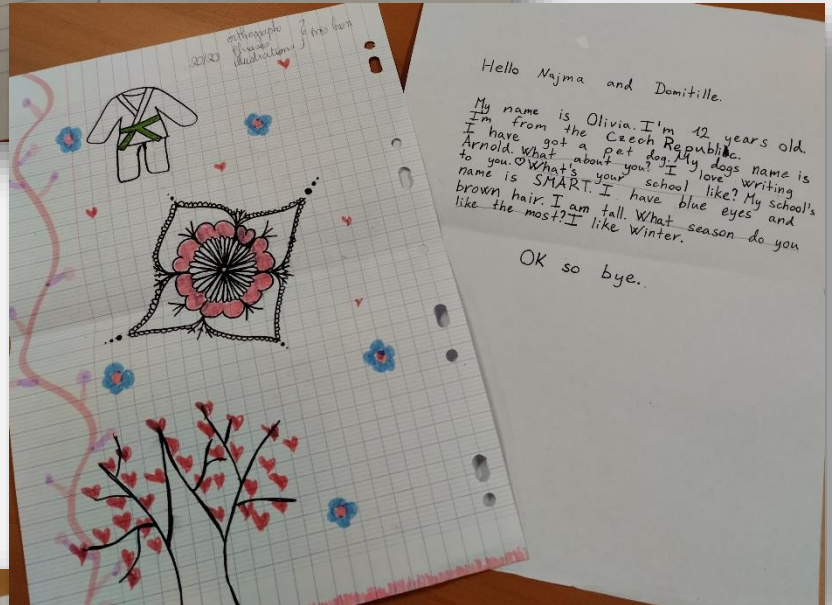 orthographe
20/20
illustrations
très bon
Hello Najma and Domitille.
My name is Olivia. I'm 12 years old.
Im from the Czech Republic.
I have got a pet dog. My dogs name is
Arnold. What about you? I love writing
to you.♡What's your school like? My school's
name is SMART. I have blue eyes and
brown hair. I am tall. What season do you
like the most? I like Winter.
OK so bye..